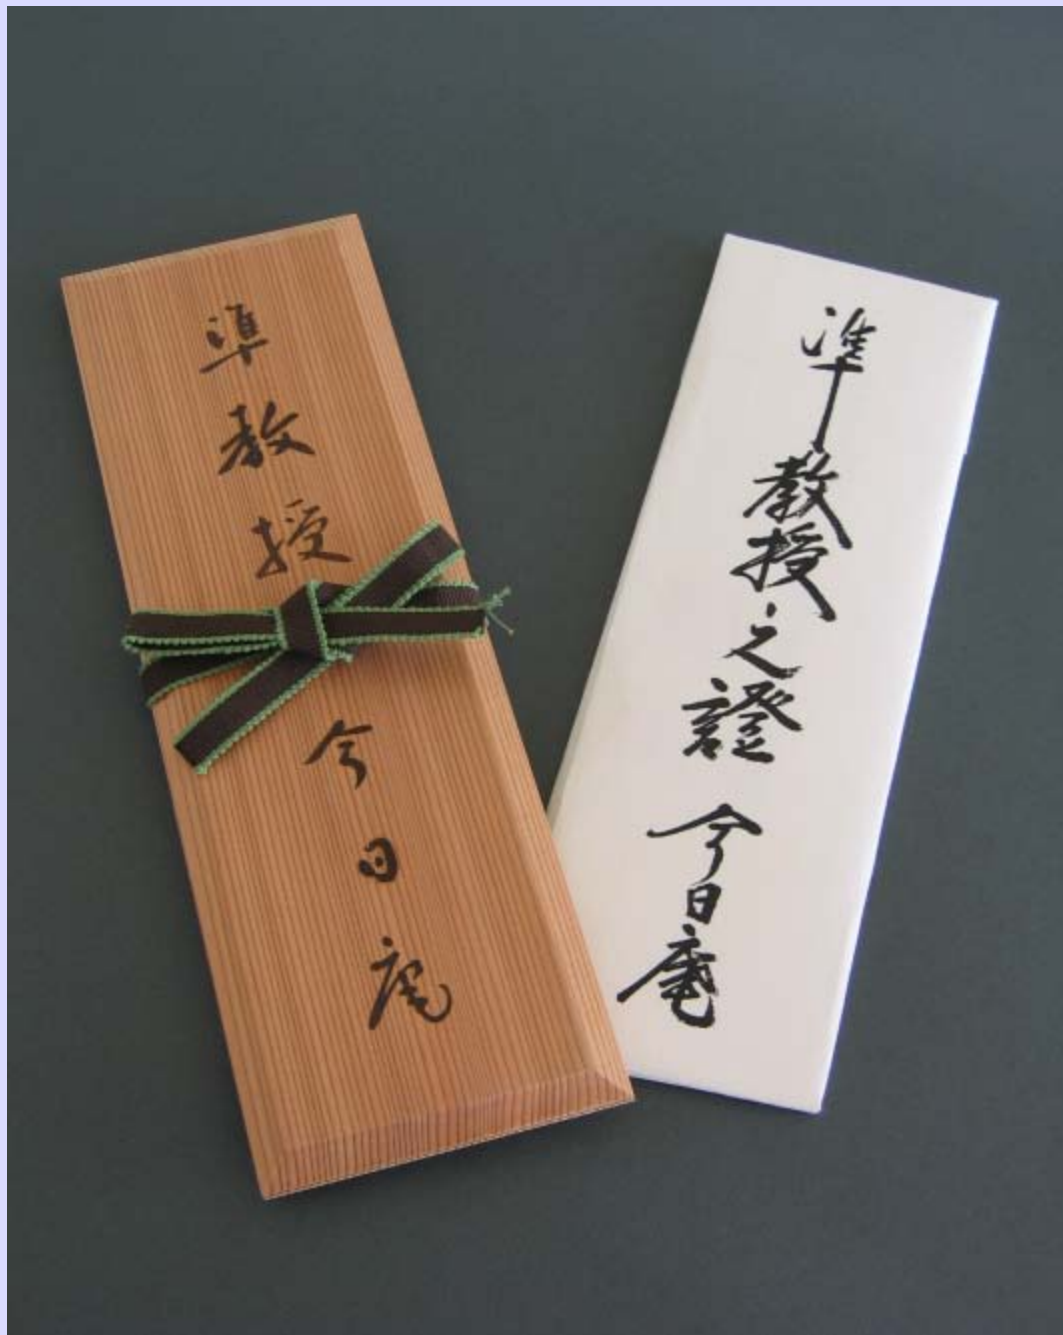 準教授
今日庵
準教授之證
今日庵